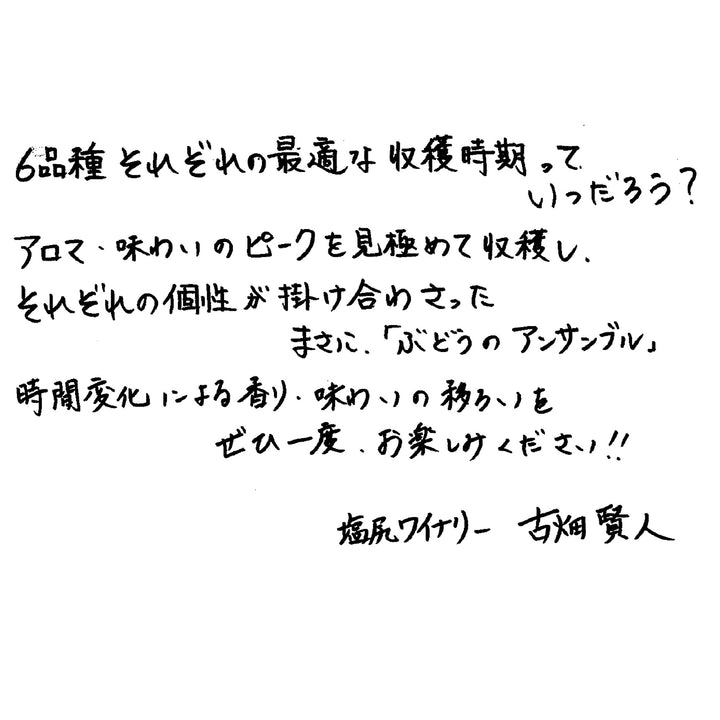 6品種それぞれの最適な収穫時期って
いつだろう?
アロマ・味わいのピークを見極めて収穫し、
それぞれの個性が掛け合わさった
まさに、「ぶどうのアンサンブル」
時間変化による香り・味わいの移ろいを
ぜひ一度、お楽しみください!!
塩尻ワイナリー 古畑賢人